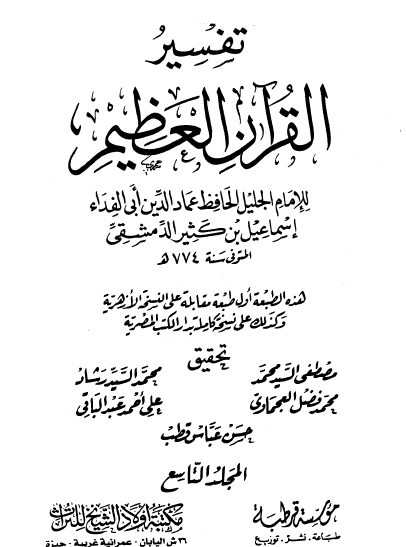 تفسير
القرآن العظيم
للإمام الجليل الحافظ عماد الدين أبي الفداء
إسماعيل بن كثير الدمشقي
المتوفى سنة ٧٧٤ هـ
هذه الطبعة أول طبعة مقابلة على النسخة الأزهرية
وكذلك على نسخة كاملة بدار الكتب المصرية
تحقيق
مصطفى السيد محمد محمد السيد رشاد
محمد فضل العجماوي علي أحمد عبد الباقي
حسن عباس قطب
المجلد التاسع
مؤسسة قرطبة مكتبة أولاد الشيخ للتراث
طباعة . نشر . توزيع ٣٦ ش اليابان - عمرانية غربية - جيزة